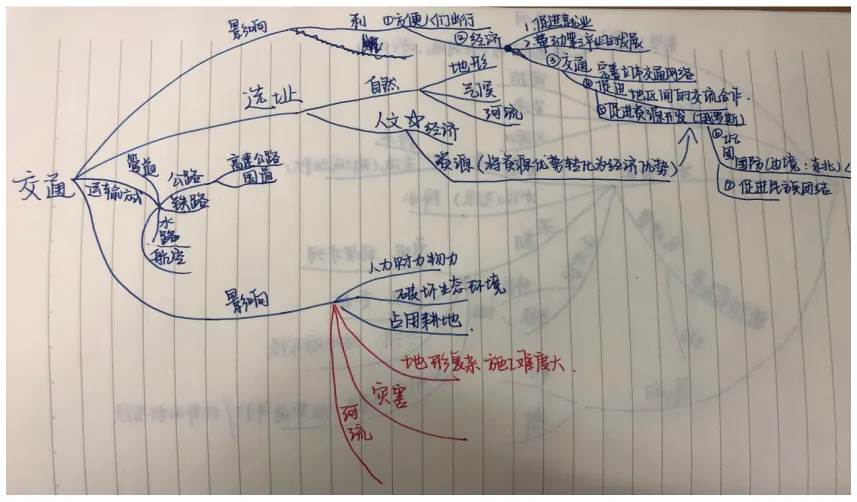 交通
影响
利 ①方便人们出行
②经济
1.促进就业
2.带动第三产业的发展
③交通 完善立体交通网络
④促进地区间的交流合作.
⑤促进资源开发 (俄罗斯)
⑥巩固
国防(边境:东北)
⑦促进民族团结
选址
自然
地形
气候
河流
人文
☆经济
资源(将资源优势转化为经济优势)
运输方式
管道
公路
高速公路
国道
铁路
水路
航空
影响
人力财力物力
破坏生态环境
占用耕地.
地形复杂 施工难度大.
灾害
河流